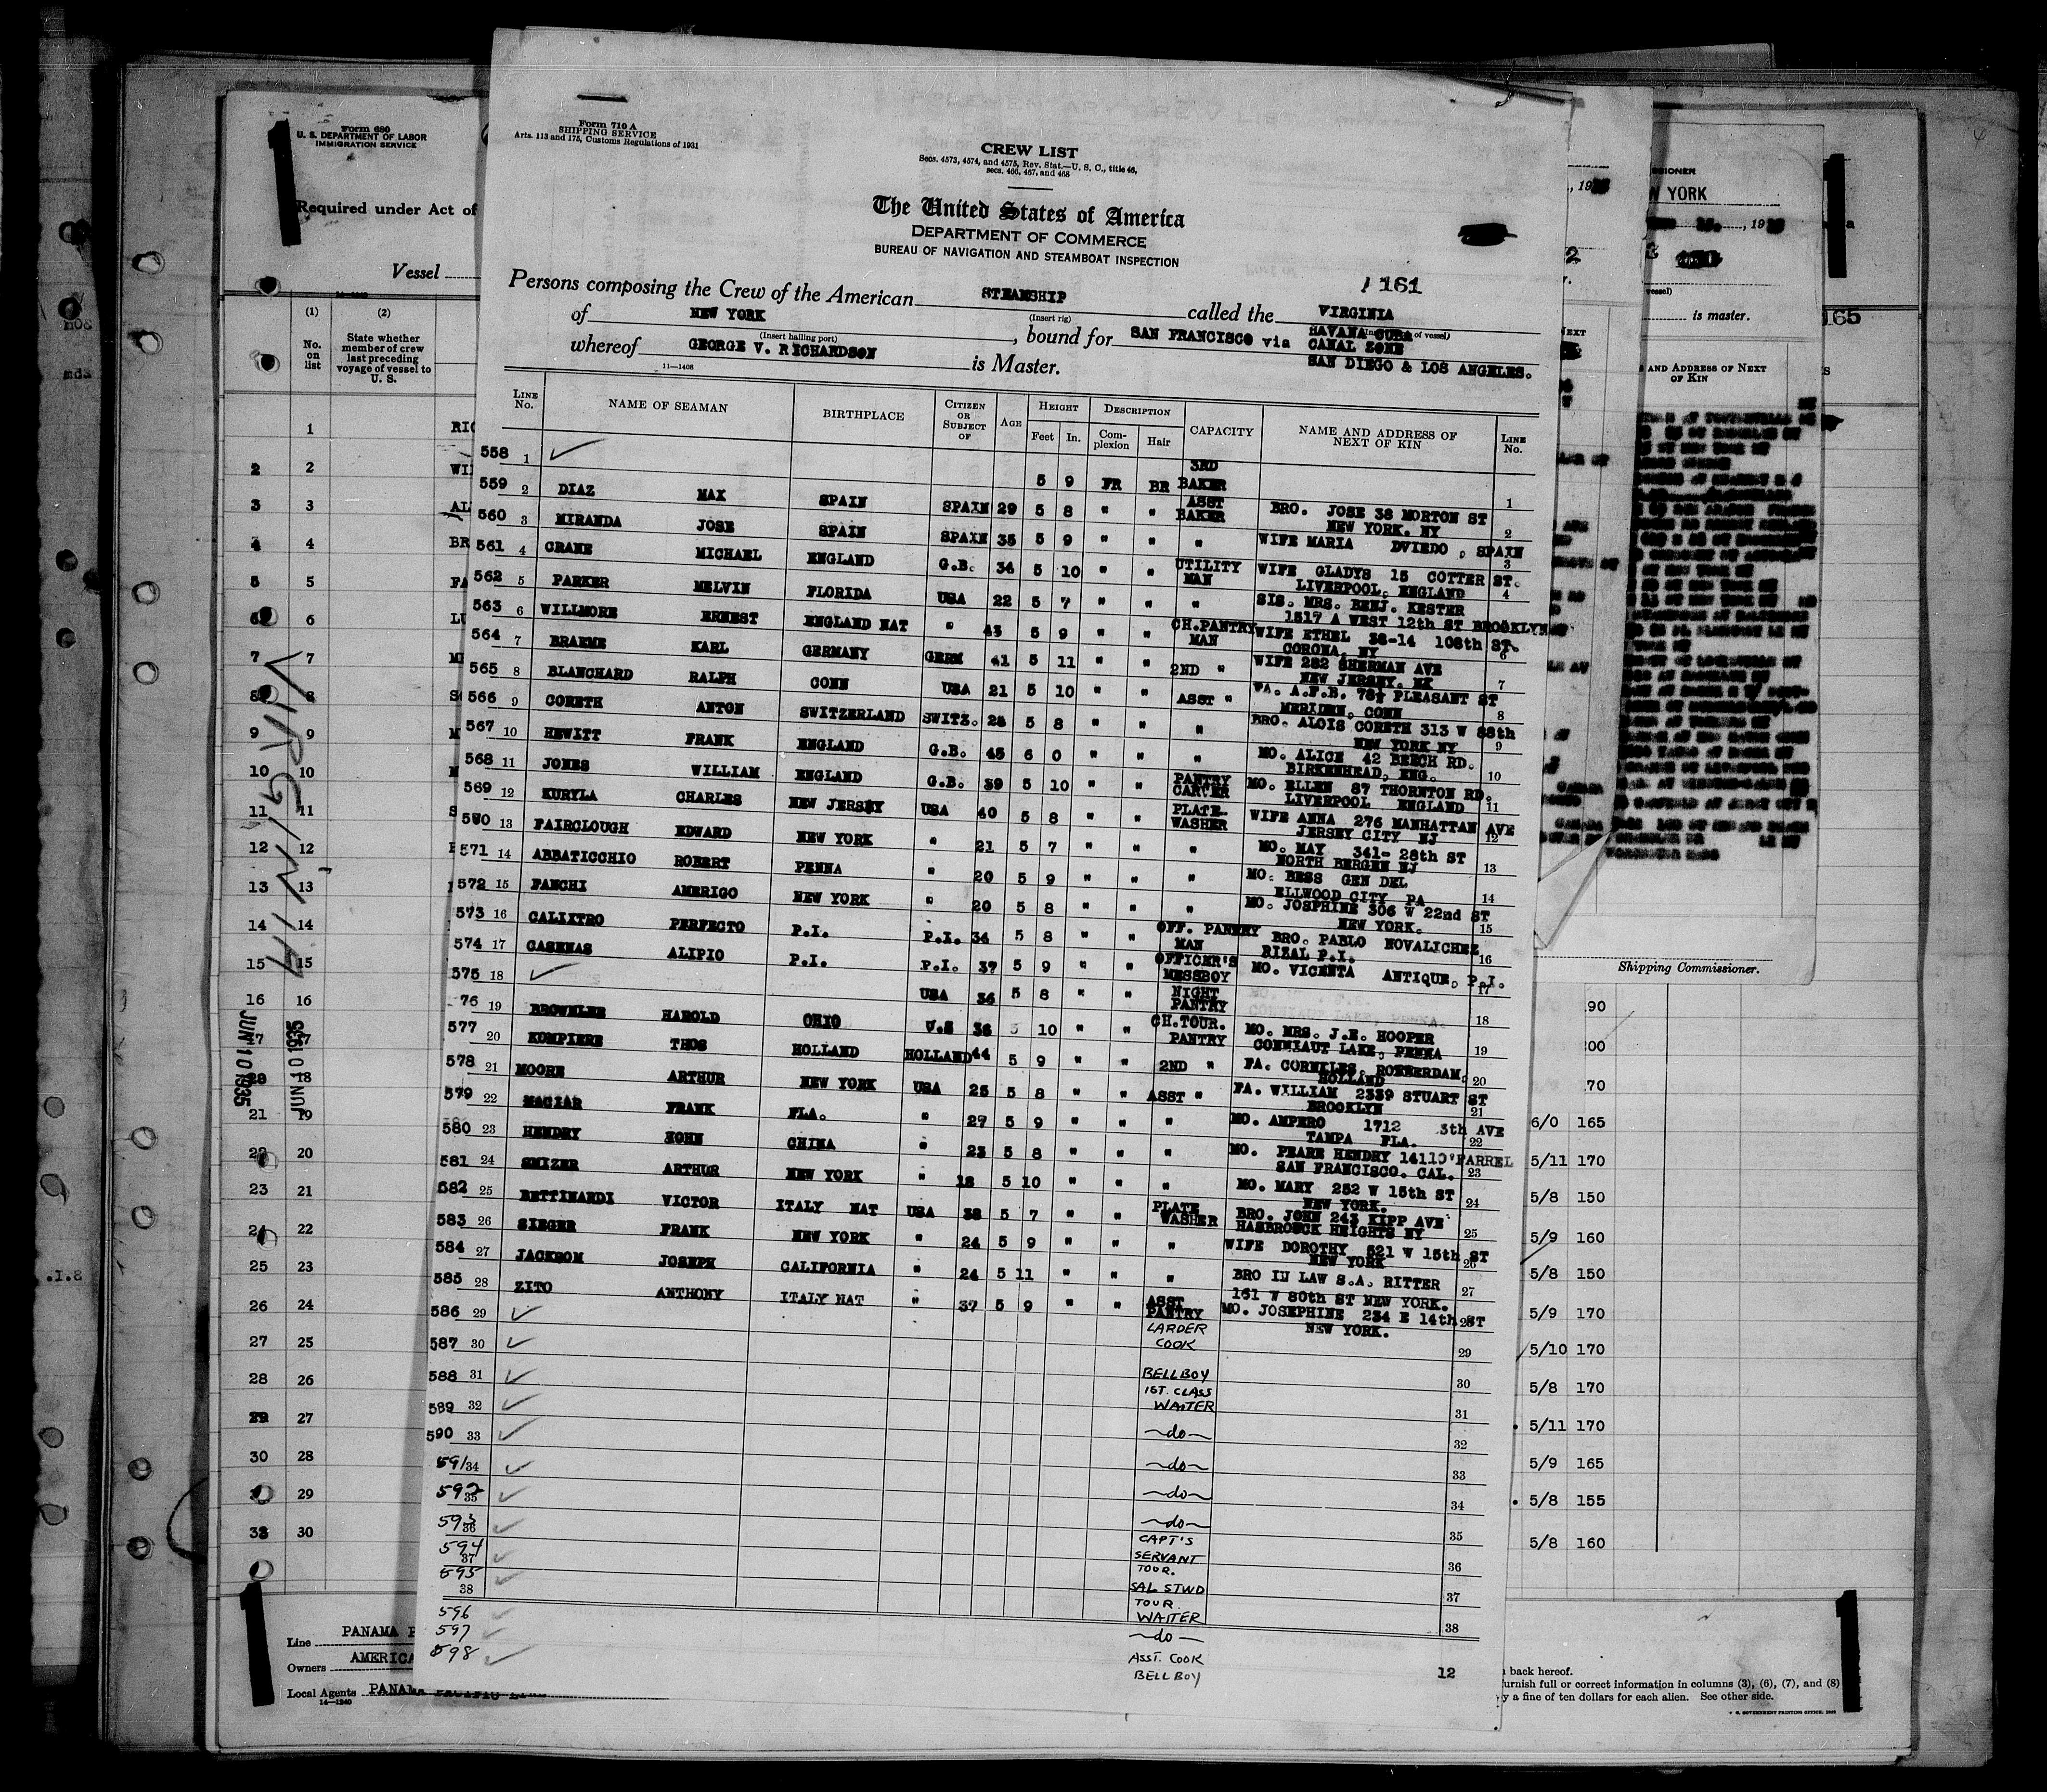 Form 710 A
SHIPPING SERVICE
Arts. 113 and 175, Customs Regulations of 1931
CREW LIST
Secs. 4573, 4574, and 4575, Rev. Stat.—U. S. C., title 46,
secs. 466, 467, and 468
The United States of America
DEPARTMENT OF COMMERCE
BUREAU OF NAVIGATION AND STEAMBOAT INSPECTION
161
Persons composing the Crew of the American STEAMSHIP called the VIRGINIA
(Insert rig)
of NEW YORK, bound for SAN FRANCISCO via HAVANA CUBA
(Insert hailing port) CANAL ZONE
whereof GEORGE V. RICHARDSON is Master. SAN DIEGO & LOS ANGELES.
11—1408
LINE No. NAME OF SEAMAN BIRTHPLACE CITIZEN OR SUBJECT OF AGE HEIGHT Feet In. DESCRIPTION Complexion Hair CAPACITY NAME AND ADDRESS OF NEXT OF KIN LINE No.
558 1 ✓ 5 9 FR BR 3RD BAKER 1
559 2 DIAZ MAX SPAIN SPAIN 29 5 8 " " ASST BAKER BRO. JOSE 38 MORTON ST NEW YORK. NY 2
560 3 MIRANDA JOSE SPAIN SPAIN 35 5 9 " " " WIFE MARIA DVIEDO, SPAIN 3
561 4 CRANE MICHAEL ENGLAND G.B. 34 5 10 " " UTILITY MAN WIFE GLADYS 15 COTTER ST. LIVERPOOL, ENGLAND 4
562 5 PARKER MELVIN FLORIDA USA 22 5 7 " " " SIS. MRS. BENJ. KESTER 1517 A WEST 12th ST BROOKLYN
563 6 WILLMORE ERNEST ENGLAND NAT " 43 5 9 " " CH.PANTRY MAN WIFE ETHEL 38-14 108th ST. CORONA, NY 6
564 7 BRAEME KARL GERMANY GERM 41 5 11 " " 2ND " WIFE 282 SHERMAN AVE NEW JERSEY. 7
565 8 BLANCHARD RALPH CONN USA 21 5 10 " " ASST " FA. A.F.B. 78½ PLEASANT ST MERIDEN, CONN 8
566 9 CORETH ANTON SWITZERLAND SWITZ. 28 5 8 " " " BRO. ALOIS CORETH 313 W 88th NEW YORK NY 9
567 10 HEWITT FRANK ENGLAND G.B. 45 6 0 " " " MO. ALICE 42 BEECH RD. BIRKENHEAD, ENG. 10
568 11 JONES WILLIAM ENGLAND G.B. 39 5 10 " " PANTRY CARVER MO. ELLEN 87 THORNTON RD. LIVERPOOL ENGLAND 11
569 12 KURYLA CHARLES NEW JERSEY USA 40 5 8 " " PLATE WASHER WIFE ANNA 276 MANHATTAN AVE JERSEY CITY NJ 12
570 13 FAIRCLOUGH EDWARD NEW YORK " 21 5 7 " " " MO. MAY 341- 28th ST NORTH BERGEN NJ 13
571 14 ABBATICCHIO ROBERT PENNA " 20 5 9 " " " MO. BESS GEN DEL ELLWOOD CITY PA 14
572 15 FANCHI AMERIGO NEW YORK " 20 5 8 " " " MO. JOSPHINE 306 W 22nd ST NEW YORK. 15
573 16 CALIXTRO PERFECTO P.I. P.I. 34 5 8 " " OFF. PANTRY MAN BRO. PABLO NOVALICHEZ RIZAL P.I. 16
574 17 CASENAS ALIPIO P.I. P.I. 37 5 9 " " OFFICER'S MESSBOY MO. VICENTA ANTIQUE, P.I. 17
575 18 ✓ USA 36 5 8 " " NIGHT PANTRY 18
76 19 BROWNLEE HAROLD OHIO U.S 36 5 10 " " CH.TOUR. PANTRY MO. MRS. J.E. HOOPER CONNIAUT LAKE, PENNA 19
577 20 KOMPIERE THOS HOLLAND HOLLAND 44 5 9 " " 2ND " FA. CORNILES, ROTTERDAM, HOLLAND 20
578 21 MOORE ARTHUR NEW YORK USA 25 5 8 " " ASST " FA. WILLIAM 2339 STUART ST BROOKLYN 21
579 22 MACIAR FRANK FLA. " 27 5 9 " " " MO. AMPERO 1712 5th AVE TAMPA FLA. 22
580 23 HENDRY JOHN CHINA " 23 5 8 " " " MO. PEARE HENDRY 1411O'FARREL SAN FRANCISCO. CAL. 23
581 24 SMIZER ARTHUR NEW YORK " 18 5 10 " " " MO. MARY 252 W 15th ST NEW YORK. 24
582 25 BETTINARDI VICTOR ITALY NAT USA 38 5 7 " " PLATE WASHER BRO. JOHN 243 KIPP AVE HASBROUCK HEIGHTS NY 25
583 26 SIEGER FRANK NEW YORK " 24 5 9 " " " WIFE DOROTHY 521 W 15th ST NEW YORK 26
584 27 JACKSOM JOSEPH CALIFORNIA " 24 5 11 " " " BRO IN LAW S.A. RITTER 161 W 80th ST NEW YORK. 27
585 28 ZITO ANTHONY ITALY NAT " 37 5 9 " " ASST PANTRY MO. JOSEPHINE 234 E 14th ST NEW YORK. 28
586 29 ✓ LARDER COOK 29
587 30 ✓
588 31 ✓ BELLBOY 30
589 32 ✓ 1ST. CLASS WAITER 31
590 33 ✓ —do— 32
591 34 ✓ —do— 33
592 35 ✓ —do— 34
593 36 ✓ —do— 35
594 37 ✓ CAPT'S SERVANT 36
595 38 ✓ TOUR. SAL STWD 37
596 ✓ TOUR. WAITER 38
597 ✓ —do—
598 ✓ ASST. COOK
BELLBOY
12
Form 680
U. S. DEPARTMENT OF LABOR
IMMIGRATION SERVICE
Required under Act of
Vessel
(1) (2)
No. on list
State whether member of crew last preceding voyage of vessel to U. S.
1 RIC
2 2 WI
3 3 AL
4 4 BR
5 5 FA
6 LU
7 7
8
9 9
10 10
11 11
12 12
13 13
14 14
15 15
16 16
17 17
20 18
21 19
22 20
23 21
24 22
25 23
26 24
27 25
28 26
29 27
30 28
29
33 30
VIRGINIA
JUN 10 1935
JUN 10 1935
Line PANAMA P
Owners AMERICA
Local Agents PANAMA PACIFIC LINE
14—1240
W YORK
, 19
is master.
AND ADDRESS OF NEXT
OF KIN
165
Shipping Commissioner.
90
00
70
6/0 165
5/11 170
5/8 150
5/9 160
5/8 150
5/9 170
5/10 170
5/8 170
5/11 170
5/9 165
5/8 155
5/8 160
back hereof.
furnish full or correct information in columns (3), (6), (7), and (8)
y a fine of ten dollars for each alien. See other side.